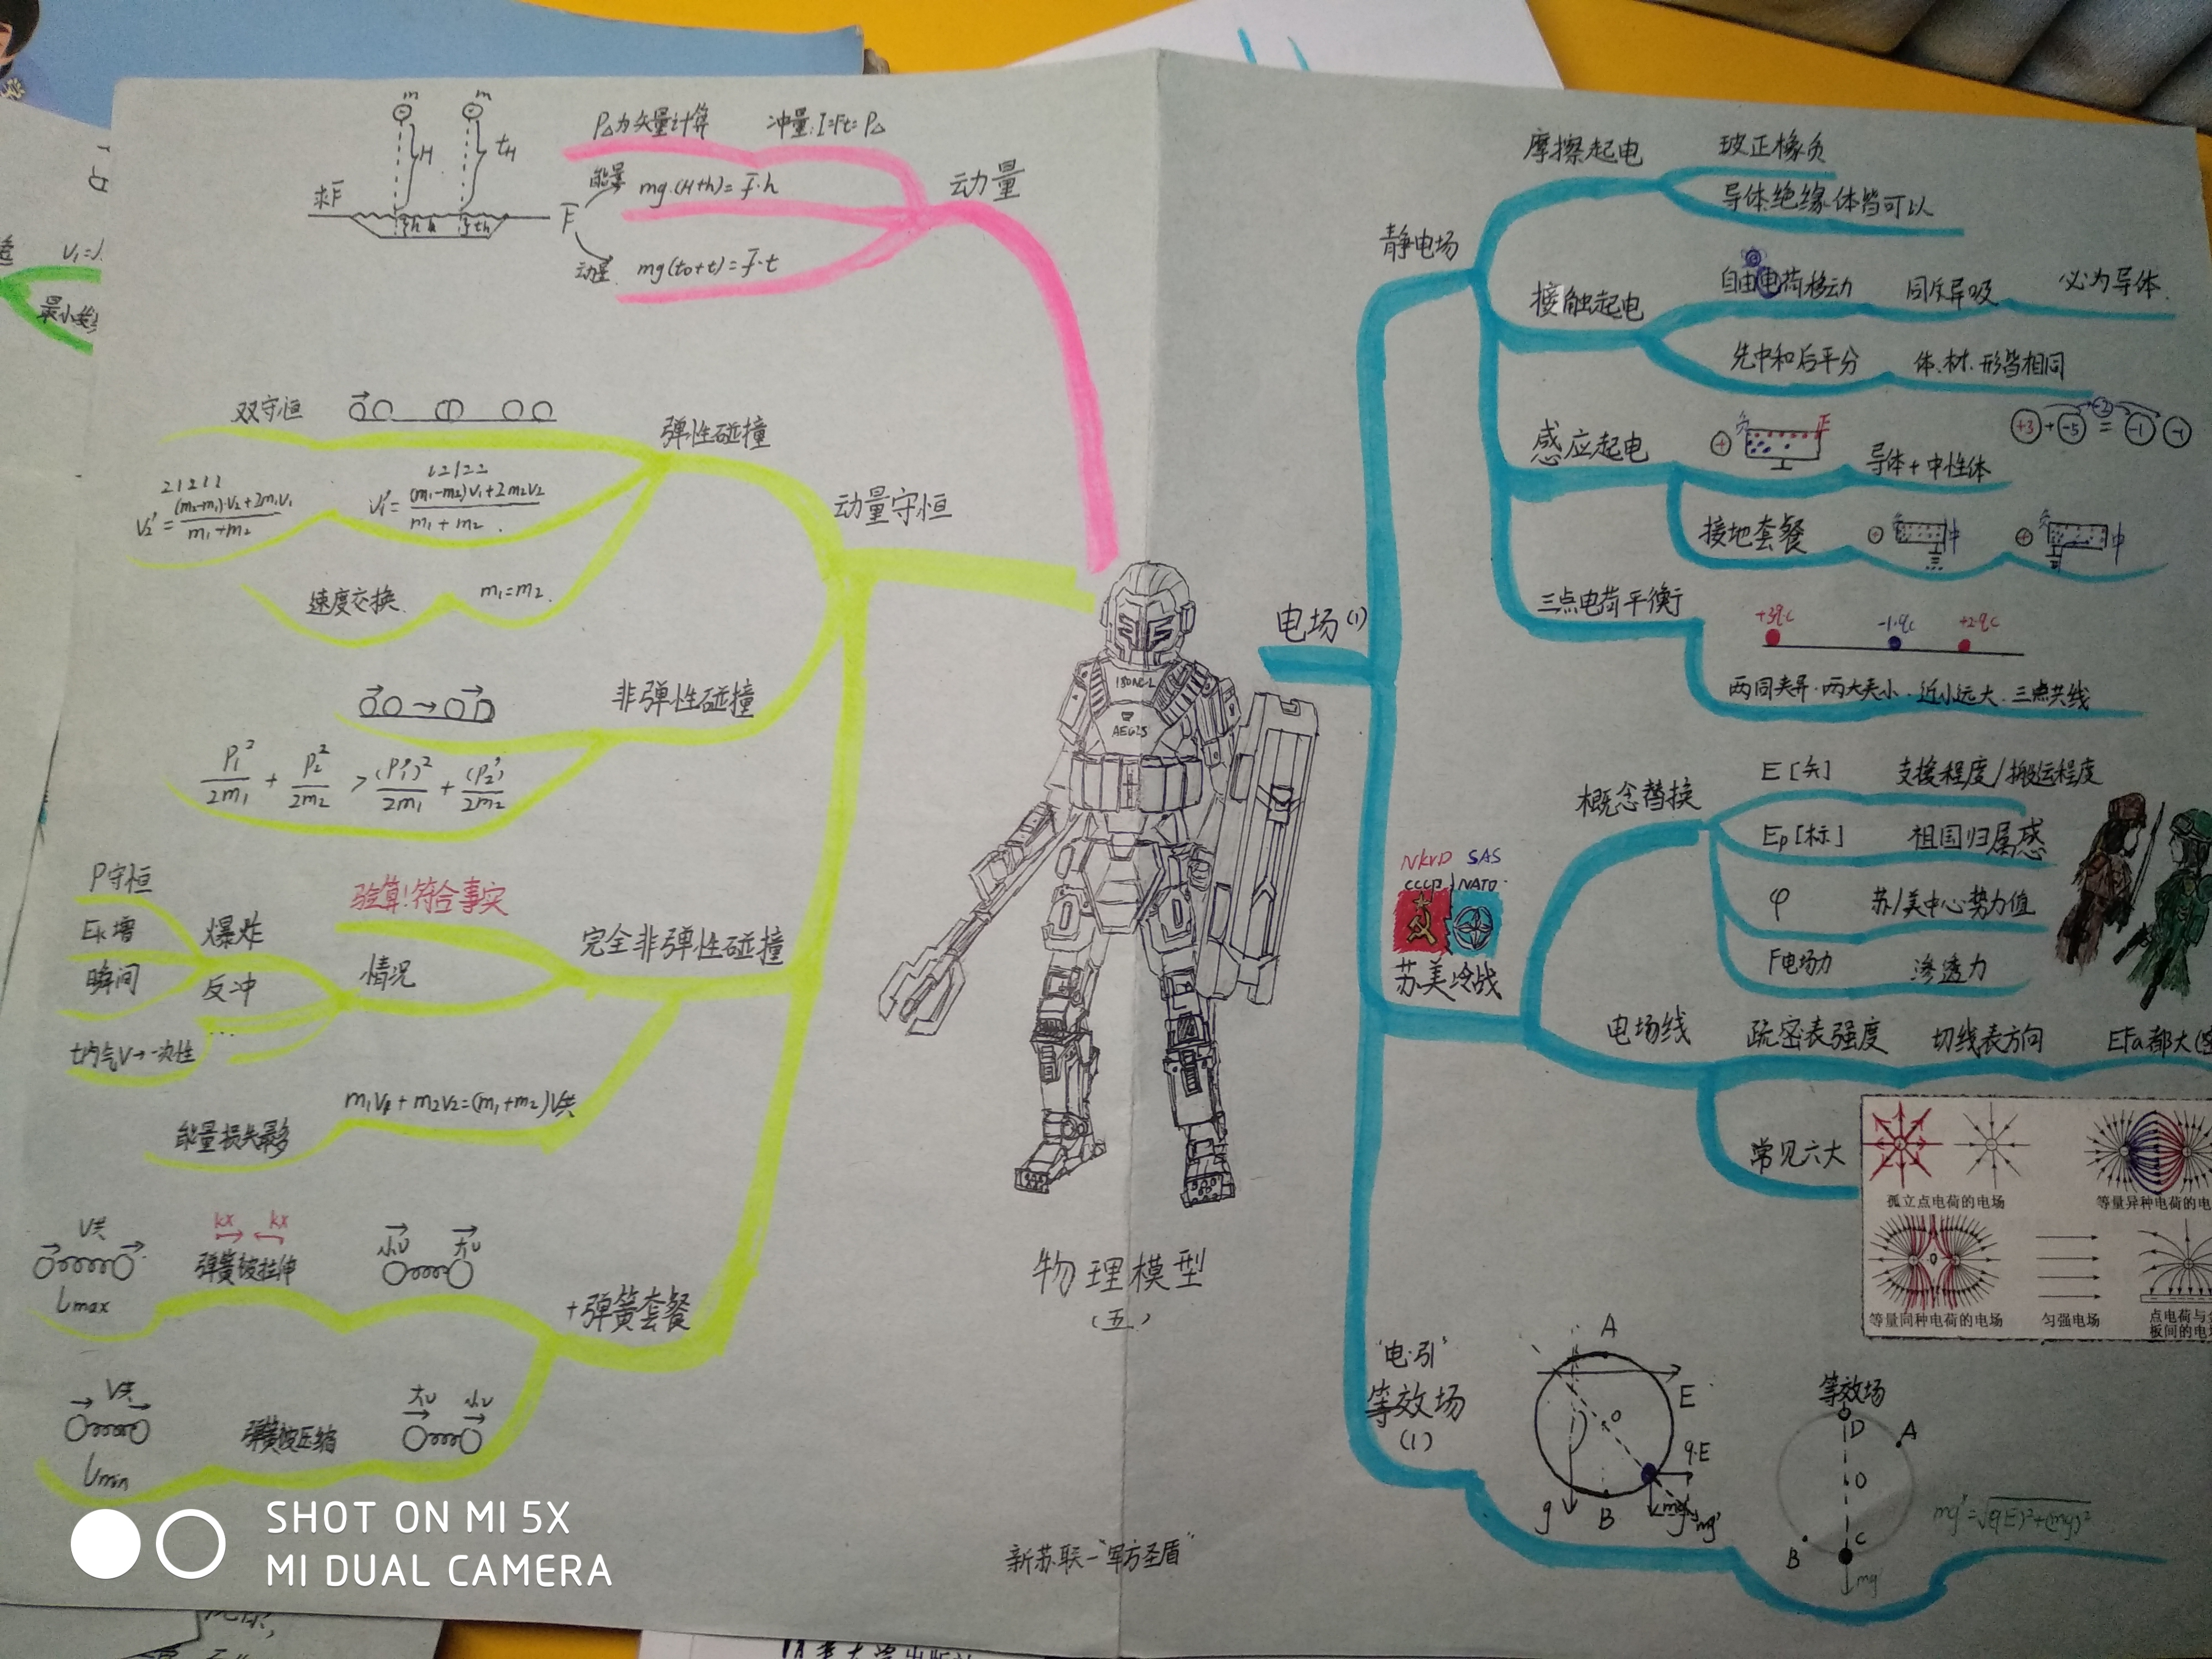 P△为矢量计算
冲量:I=Ft=P△
动量
能量
mg·(H+h)=F̄·h
动量
mg(t₀+t)=F̄·t
求F̄
m
m
H
tH
h
th
F̄
动量守恒
弹性碰撞
双守恒
21211
V₂'=(m₂-m₁)·V₂+2m₁V₁/m₁+m₂
12122
V₁'=(m₁-m₂)V₁+2m₂V₂/m₁+m₂
速度交换
m₁=m₂
非弹性碰撞
P₁²/2m₁ + P₂²/2m₂ > (P₁')²/2m₁ + (P₂')²/2m₂
完全非弹性碰撞
验算!符合事实
情况
爆炸
P守恒
Ek增
瞬间
反冲
...
t内气V→一次性
m₁V₁+m₂V₂=(m₁+m₂)V共
能量损失最多
+弹簧套餐
V共
Lmax
kx kx
弹簧被拉伸
小v 大v
V共
Lmin
弹簧被压缩
大v 小v
AEGIS
物理模型
(五)
新苏联-"军方圣盾"
电场(1)
静电场
摩擦起电
玻正橡负
导体绝缘体皆可以
接触起电
自由电荷移动
同斥异吸
必为导体
先中和后平分
体、材、形皆相同
+3 + -5 = -1 -1
-2
感应起电
+
负 正
导体+中性体
接地套餐
+ 负 中
+ 负 中
三点电荷平衡
+3qc
-1·qc
+2·qc
两同夹异·两大夹小·近小远大·三点共线
NKVD SAS
CCCP NATO
苏美冷战
概念替换
E[矢] 支援程度/搬运程度
Ep[标] 祖国归属感
φ 苏/美中心势力值
F电场力 渗透力
电场线
疏密表强度
切线表方向
EFa都大
常见六大
孤立点电荷的电场
等量异种电荷的电
等量同种电荷的电场
匀强电场
点电荷与
板间的电
"电·引"
等效场
(1)
A
E
O
q·E
g
B
mg
mg'
等效场
D
A
O
C
B
mg'
mg'=√(qE)²+(mg)²
SHOT ON MI 5X
MI DUAL CAMERA